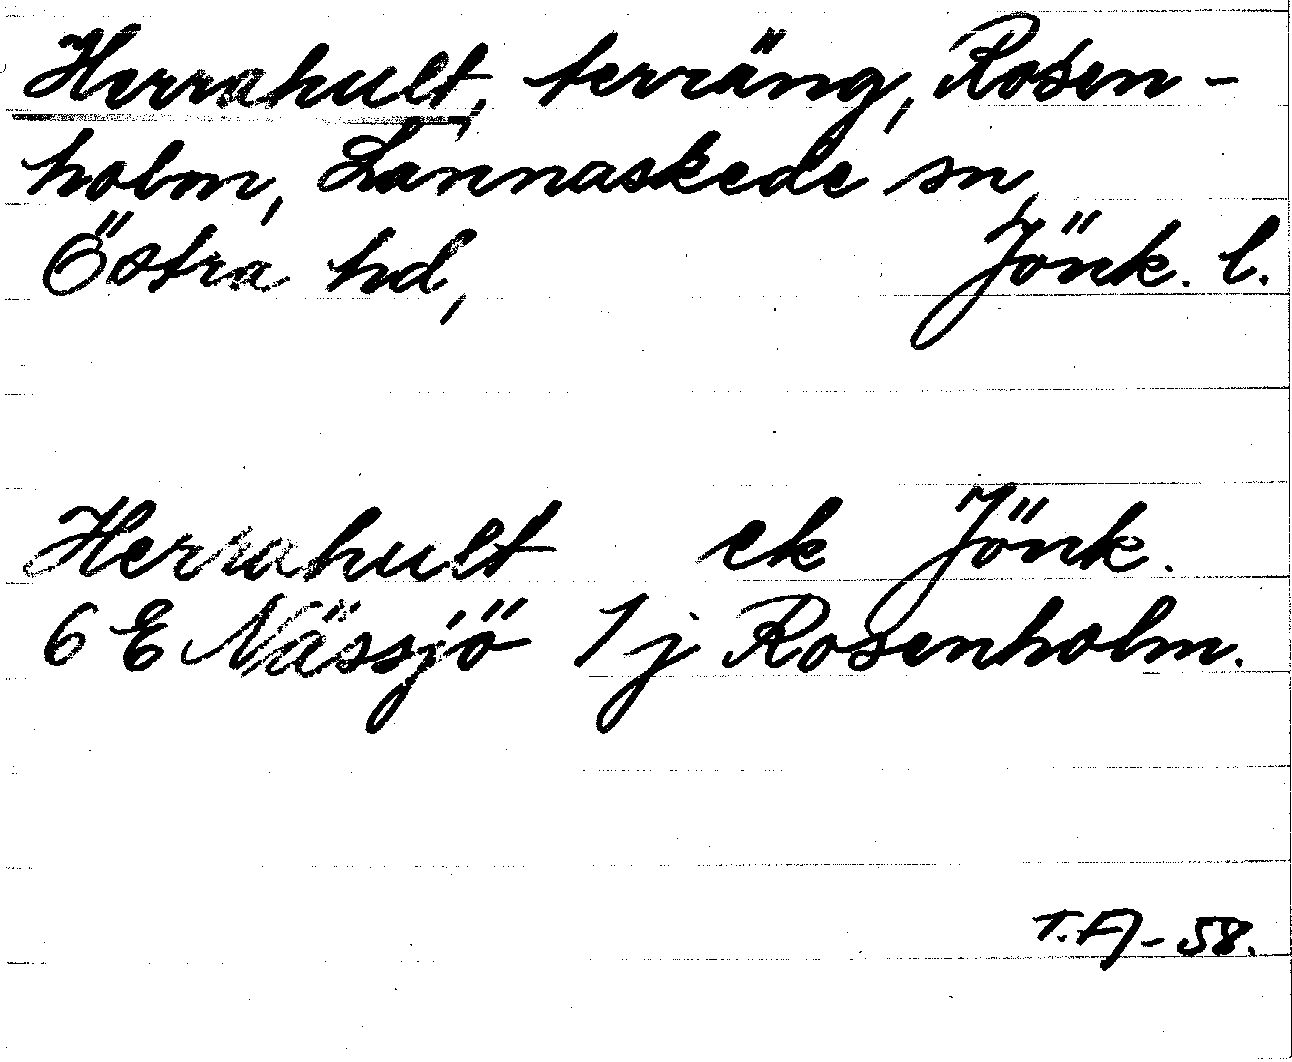 Herrahult, terräng, Rosen-
holm, Lannaskede sn,
Östra hd, Jönk. l.
Herrahult ek Jönk.
6 E Nässjö 1j Rosenholm.
T.A-58.